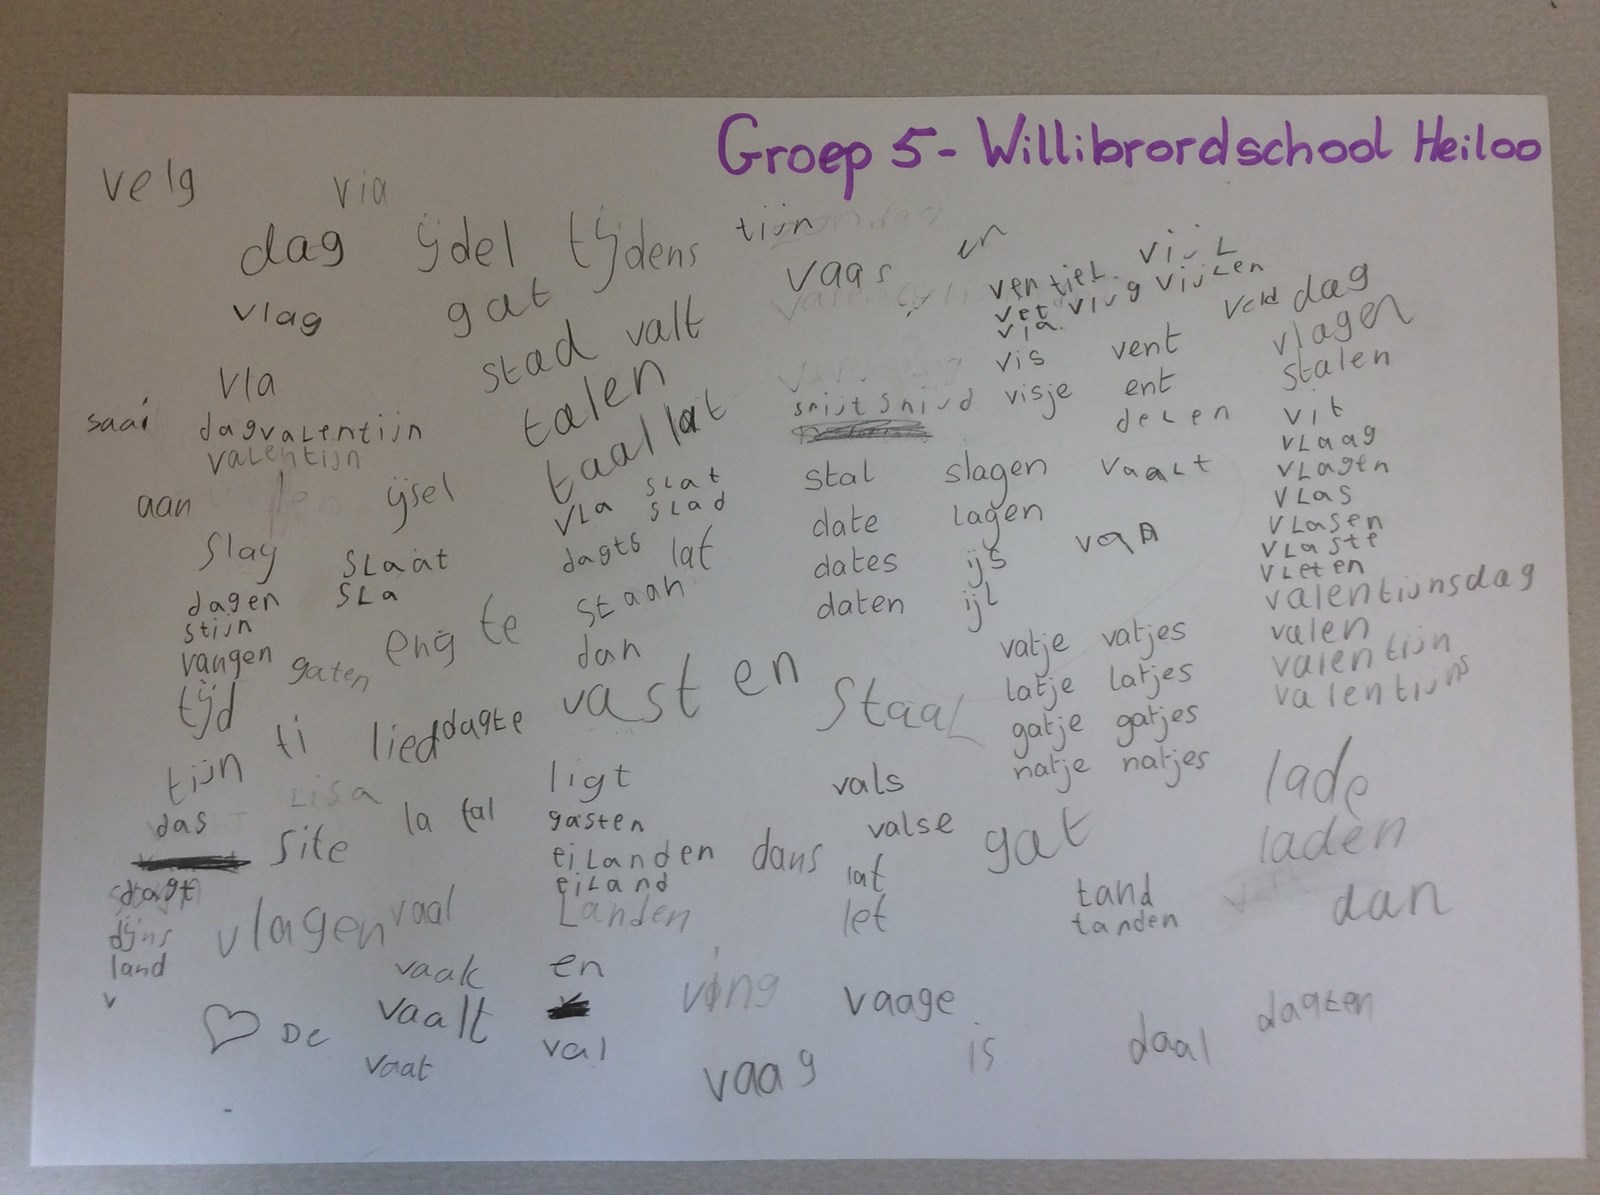 Groep 5 - Willibrordschool Heiloo
velg via
dag ijdel tijdens tijn
vaas en
vijl
ventiel
vet vijg vijlen
via
vlag gat
stad valt
veld dag
vlagen
vis vent
stalen
vla
talen
visje ent
saai
dagvalentijn
valentijn
taal lat
delen
vit
vlaag
vlagen
vlas
vlasen
vlaste
vleten
valentijnsdag
valen
valentijn
valentijns
aan ijsel
vla slat
slad
stal slagen vaalt
date lagen
dates ijs
daten ijl
slag slaat
dagts lat
dagen sla
staan
stijn
vangen gaten eng te
dan
vatje vatjes
latje latjes
gatje gatjes
natje natjes
tijd
vast en staal
tijn ti lied dagte
ligt
vals
lade
Lisa
das
site la tal
gasten
valse gat
laden
eilanden dans
eiland
lat
landen
let
tand
tanden
dan
dagt
vlagen vaal
land
v
vaak
en
ving
vaage
De
vaalt
vaat
val
vaag
is
daal
dagten